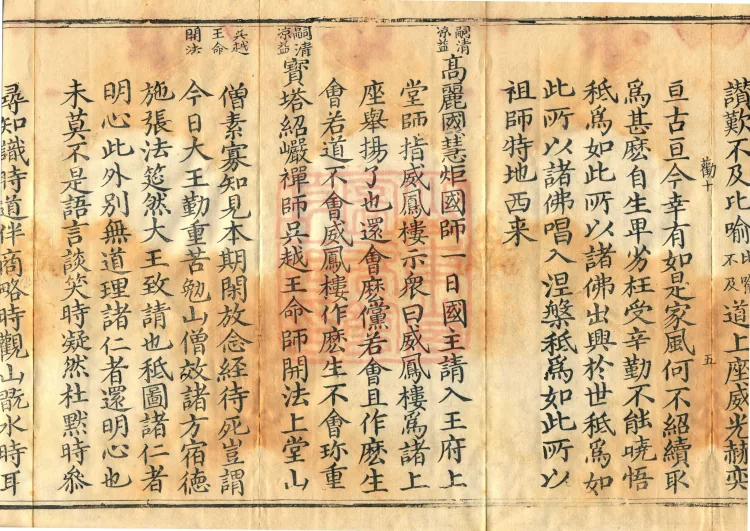 讃歎不及比喻比喻不及道上座威光赫奕
勸十
亘古亘今幸有如是家風何不紹續取
爲甚麽自生卑劣枉受辛勤不能曉悟
秪爲如此所以諸佛出興於世秪爲如
此所以諸佛唱入涅槃秪爲如此所以
祖師特地西来
五
嗣清凉益
高麗國慧炬國師一日國主請入王府上
堂師指威鳳樓示衆曰威鳳樓爲諸上
座舉揚了也還會麽儻若會且作麽生
會若道不會威鳳樓作麽生不會珎重
嗣清凉益
寳塔紹巖禪師吴越王命師開法上堂山
吴越王命開法
僧素寡知見本期閑放念経待死豈謂
今日大王勤重苦勉山僧效諸方宿德
施張法筵然大王致請也秪圖諸仁者
明心此外别無道理諸仁者還明心也
未莫不是語言談笑時凝然杜黙時叅
尋知識時道伴商略時觀山翫水時耳